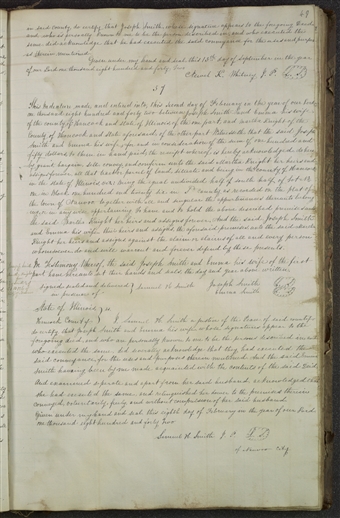 49
in said county, do certify that Joseph Smith, whose signature appears to the foregoing Deed
and who is personally known to me to be the person described in and who executed the
same did acknowledge that he had executed the said conveyance for the uses and purposes
therein mentioned.
Given under my hand and seal this 10th day of September in the year
of our Lord one thousand eight hundred and forty two
Newel K. Whitney J. P.
This Indenture, made, and entered into, this second day of February in the year of our Lord
one thousand eight hundred and forty two between Joseph Smith and Emma his wife
of the county of Hancock and State of Illinois of the one part and Martha Knight of the
County of Hancock and State aforesaid of the other part Witnesseth that the said Joseph
Smith and Emma his wife, for and in consideration of the sum of one hundred and
fifty dollars to them in hand paid the receipt whereof is hereby acknowledged do hereby
grant bargain sell convey and confirm unto the said Martha Knight her heirs and
assigns forever, all that tract or parcel of Land, situate and being in the county of Hancock
in the State of Illinois and being the equal undivided half of south half of lot
One in Block one hundred and thirty six in Sd County as recorded in the plat of
the town of Nauvoo together with all and singular the appurtenances thereunto belong
ing or in any wise appertaining to have and to hold the above described premises unto
the said Martha Knight her heirs and assigns forever. And the said Joseph Smith
and Emma his wife, their heirs and assigns the aforesaid premises unto the said Martha
Knight her heirs and assigns against the claim or claims of all and every person
whomsoever do and will warrant and forever defend by these presents.
In Testimony whereof, the said Joseph Smith and Emma his wife of the first
part have hereunto set their hands and seals the day and year above written
signed sealed and delivered
in presence of
Samuel H. Smith
Joseph Smith
Emma Smith
State of Illinois
Hancock County
I Samuel H. Smith a justice of the Peace of said county
do certify that Joseph Smith and Emma his wife whose signatures appear to the
foregoing deed, and who are personally known to me to be the persons described in and
who executed the same did severally acknowledge that they had executed the
said conveyance for the uses and purposes therein mentioned. And the said Emma
Smith having been by me made acquainted with the contents of the said Deed
and examined separate and apart from her said husband acknowledged that
she had executed the same and relinquished her dower to the premises therein
conveyed, voluntarily, freely and without compulsion of her said husband
Given under my hand and seal this eighth day of February in the year of our Lord
one thousand eight hundred and forty two
Samuel H. Smith J. P.
of Nauvoo City